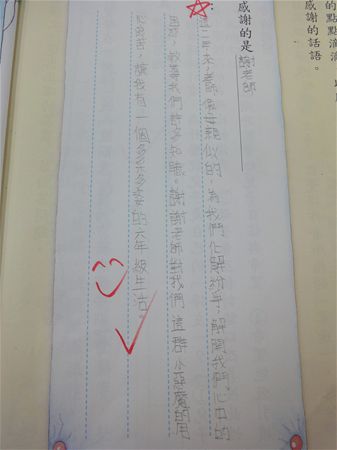 的點點滴滴
感謝的話語。
感謝的是 謝老師
這一年來,老師像母親似的,為我們化解紛爭,解開我們心中的
困惑,教導我們許多知識。謝謝老師對我們這群小惡魔的用
心良苦,讓我有一個多采多姿的六年級生活。